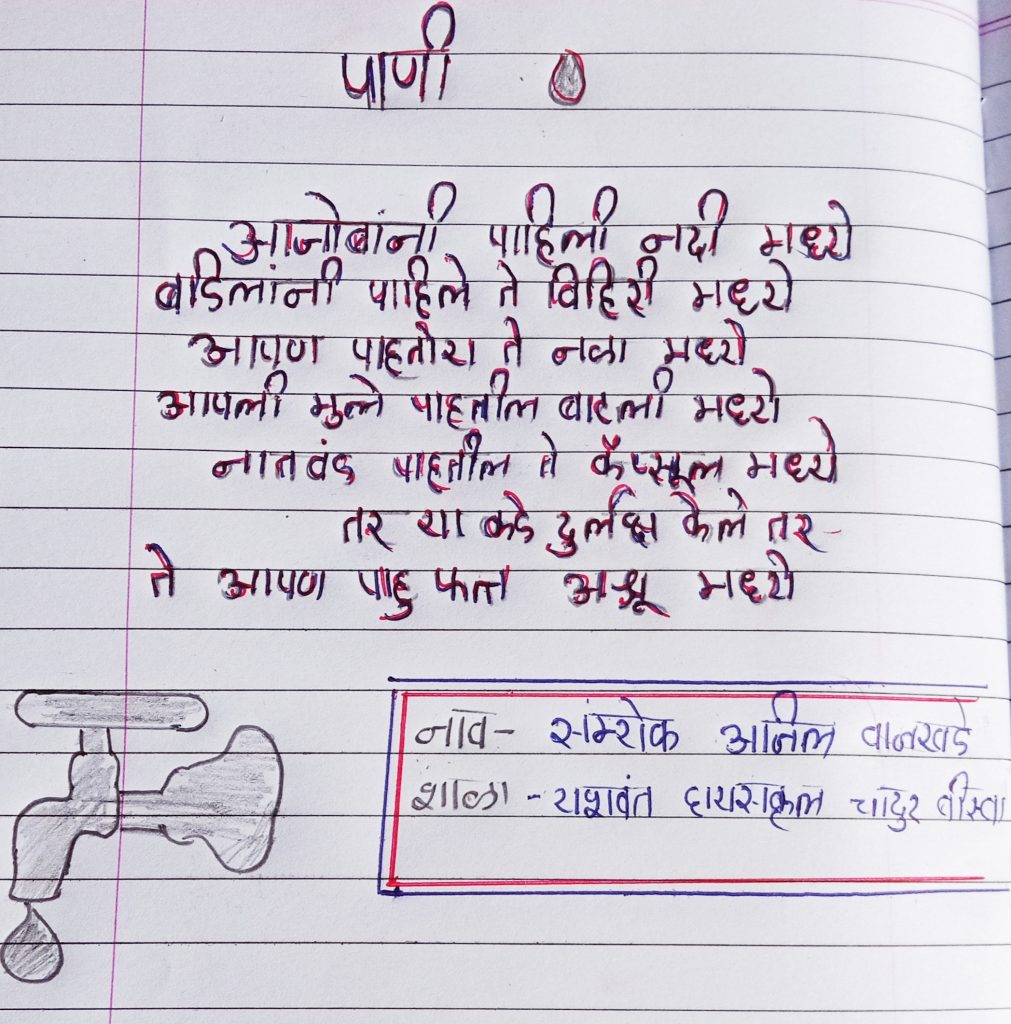 पाणी
आजोबांनी पाहिली नदी मध्ये
वडिलांनी पाहिले ते विहिरी मध्ये
आपण पाहतोय ते नळा मध्ये
आपली मुल्ले पाहतील बाटली मध्ये
नातवंड पाहतील ते कॅप्सूल मध्ये
तर या कडे दुर्लक्ष केले तर-
ते आपण पाहु फक्त अश्रू मध्ये
नाव- सम्यक अनिल वानखडे
शाळा - यशवंत हायस्कूल चादुर